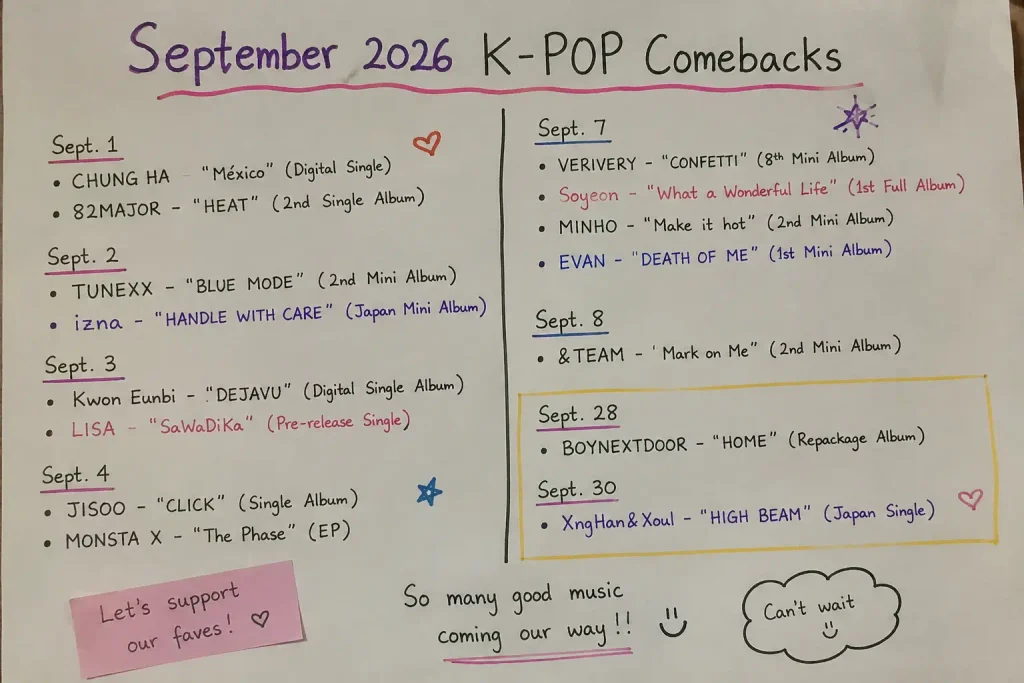 September 2026 K-POP Comebacks
Sept. 1
• CHUNG HA - "México" (Digital Single)
• 82MAJOR - "HEAT" (2nd Single Album)
Sept. 2
• TUNEXX - "BLUE MODE" (2nd Mini Album)
• izna - "HANDLE WITH CARE" (Japan Mini Album)
Sept. 3
• Kwon Eunbi - "DEJAVU" (Digital Single Album)
• LISA - "SaWaDiKa" (Pre-release Single)
Sept. 4
• JISOO - "CLICK" (Single Album)
• MONSTA X - "The Phase" (EP)
Sept. 7
• VERIVERY - "CONFETTI" (8th Mini Album)
• Soyeon - "What a Wonderful Life" (1st Full Album)
• MINHO - "Make it hot" (2nd Mini Album)
• EVAN - "DEATH OF ME" (1st Mini Album)
Sept. 8
• &TEAM - ' Mark on Me" (2nd Mini Album)
Sept. 28
• BOYNEXTDOOR - "HOME" (Repackage Album)
Sept. 30
• XngHan&Xoul - "HIGH BEAM" (Japan Single)
Let's support
our faves!
So many good music
coming our way!!
Can't wait